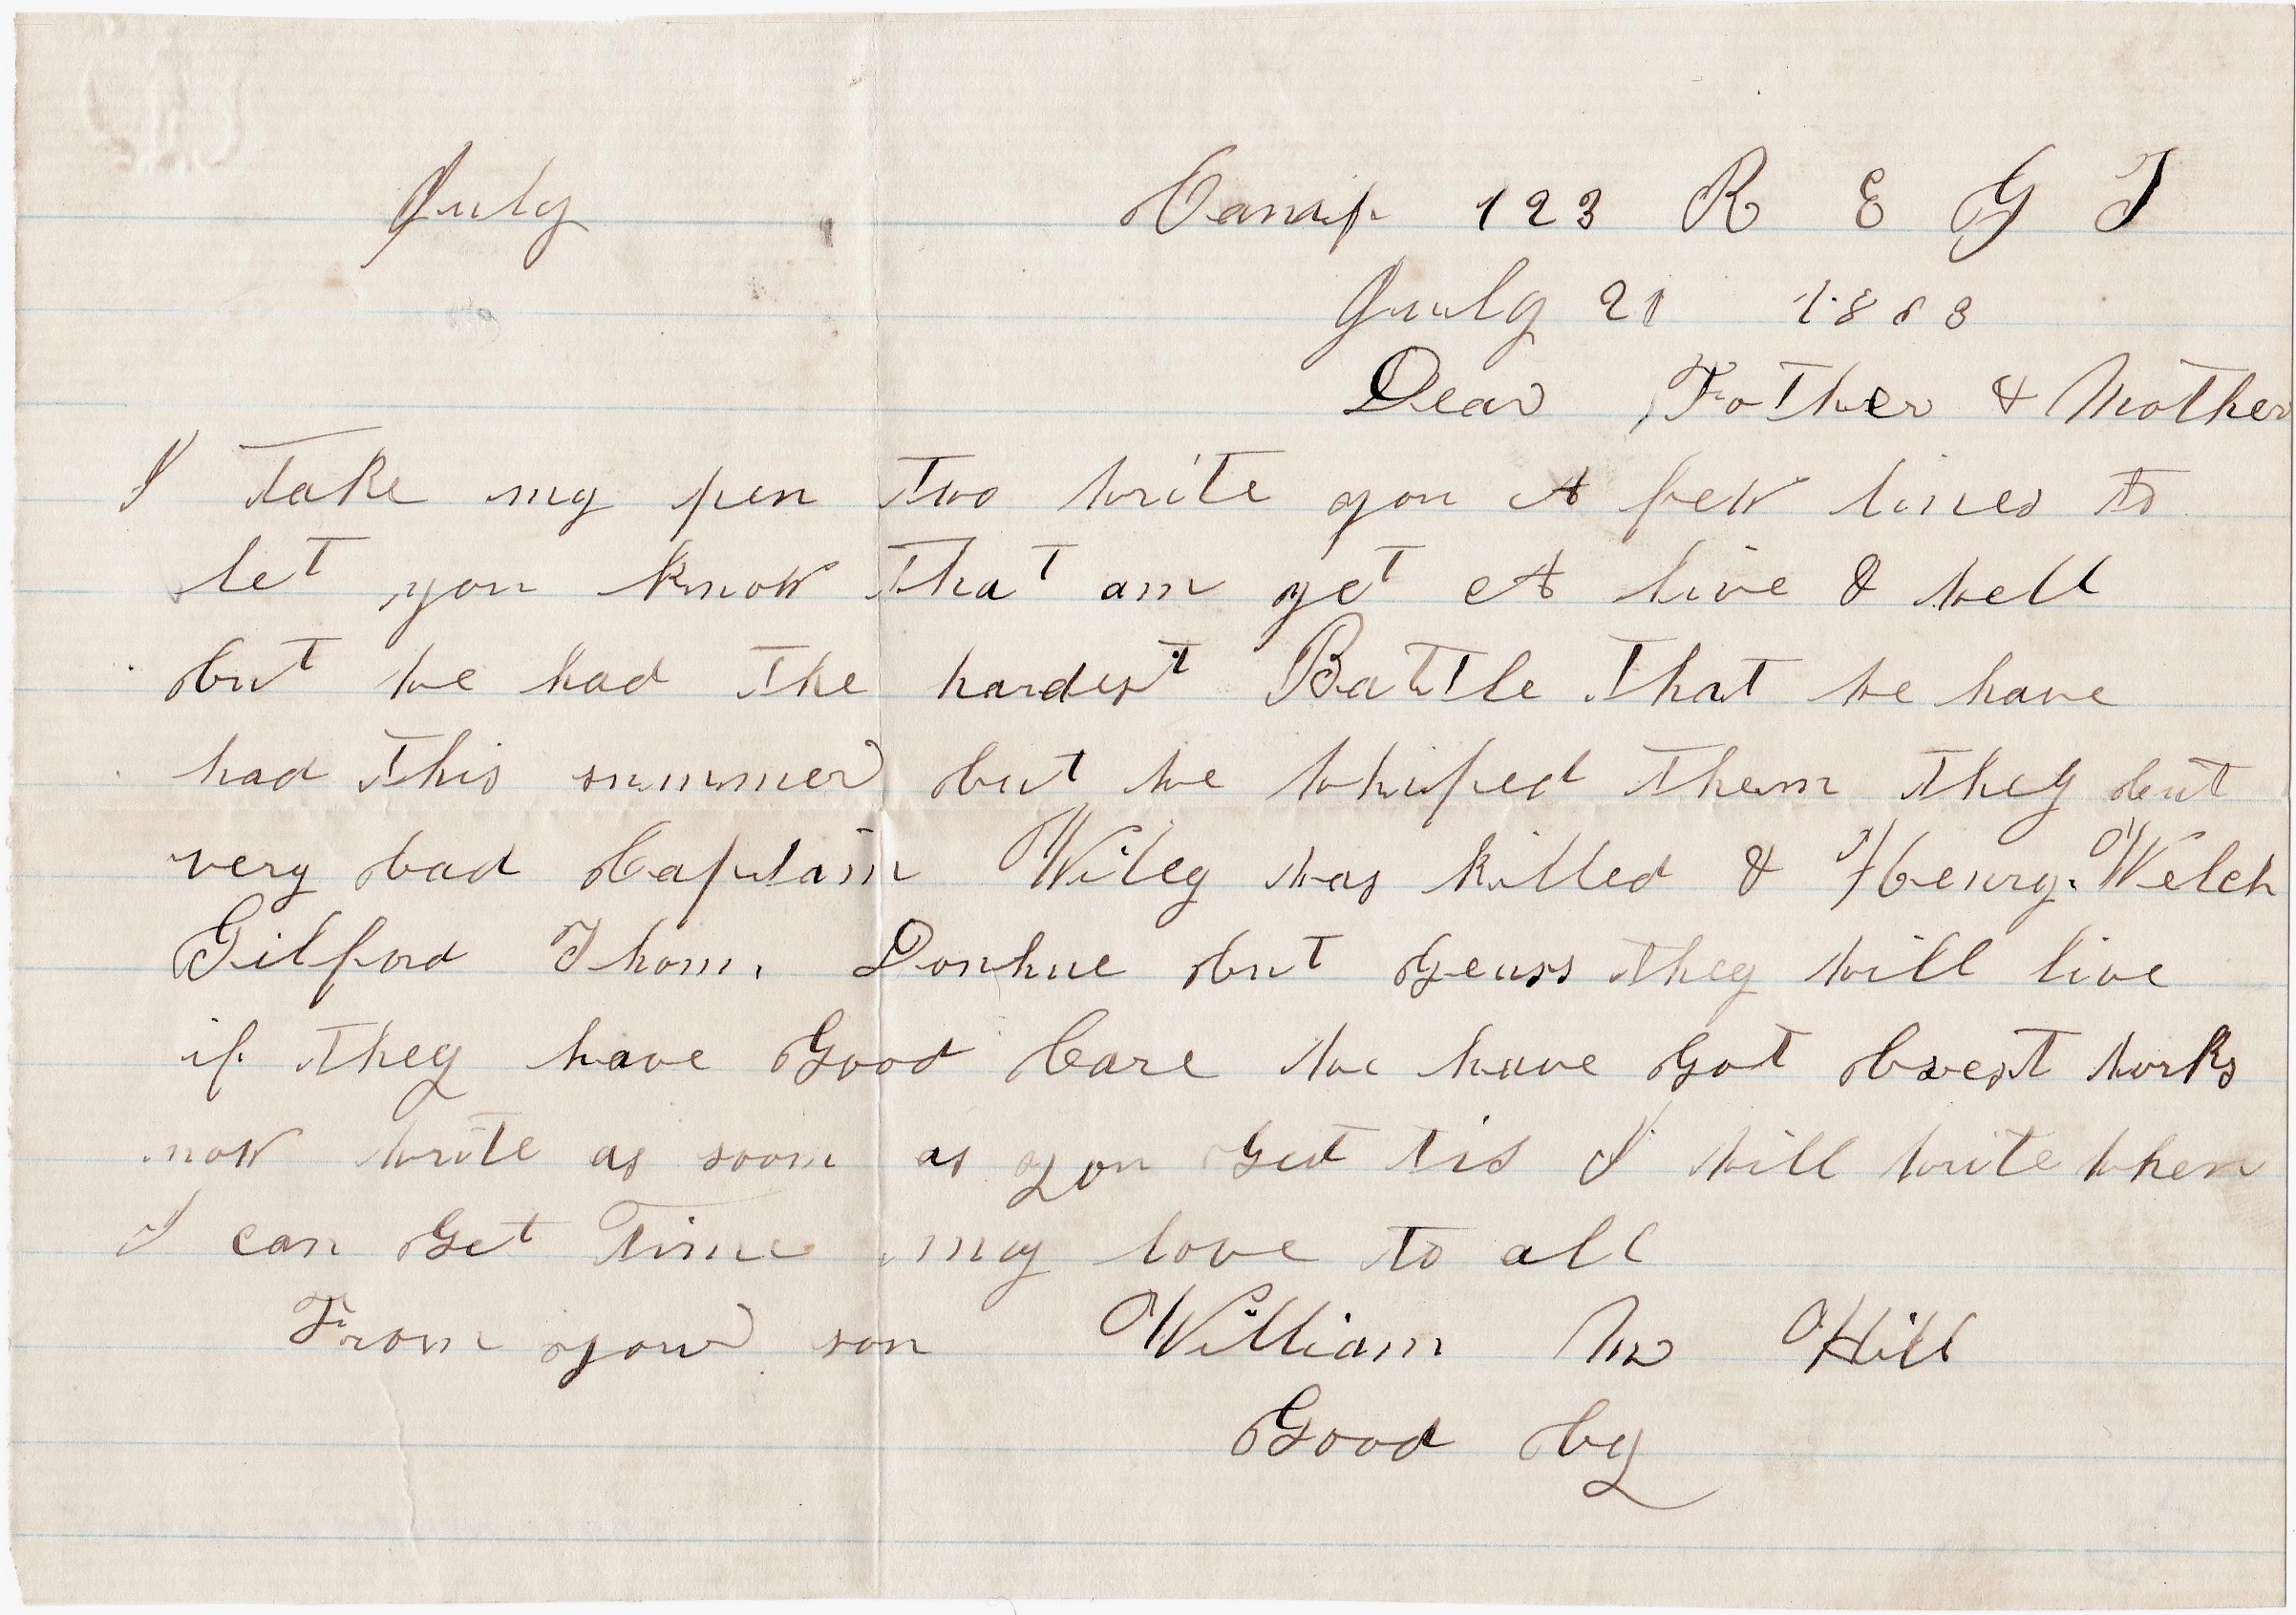 July Camp 123 R E G T
July 21 1863
Dear Father & Mother
I take my pen two write you A few lines to
let you know that am yet A live & well
but we had the hardest Battle that we have
had this summer but we whiped them they but
very bad Captain Wiley was killed & Henry. Welch
Gilford Thom. Donhue but Geuss they will live
if they have Good Care we have Got Brest works
now write as soon as you Get tis I will write when
I can Get Time my love to all
From your son William M Hill
Good by